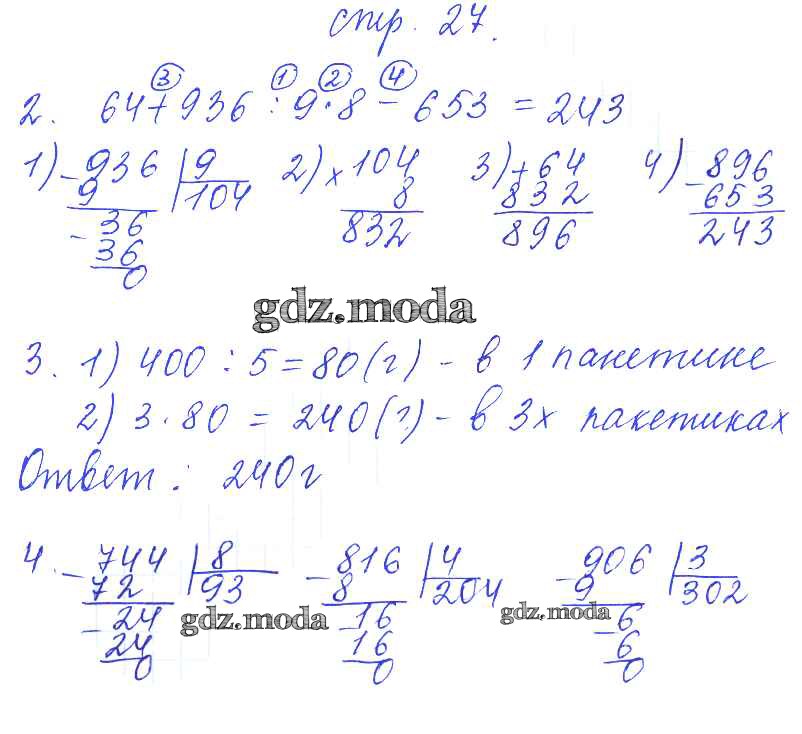 стр. 27.
③ ① ② ④
2. 64+936 : 9·8 - 653 = 243
1) -936 | 9 2) × 104 3) + 64 4) - 896
9 104 8 832 653
- 36 832 896 243
36
0
gdz.moda
3. 1) 400 : 5 = 80 (г) - в 1 пакетике
2) 3·80 = 240 (г) - в 3х пакетиках
Ответ: 240 г
4. - 744 | 8 - 816 | 4 - 906 | 3
72 93 8 204 9 302
- 24 - 16 - 6
gdz.moda gdz.moda
24 16 6
0 0 0